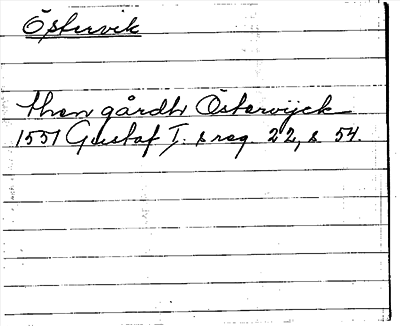 Östervik
then gårdh Östervijck
1551 Gustaf I:s reg. 22, s. 54.